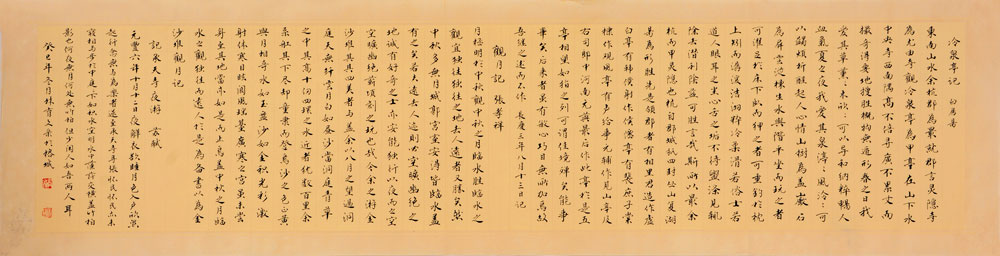 冷泉亭記 白居易
東南山水余杭郡為最就郡言靈隱寺
為尤由寺觀冷泉亭為甲亭在山下水
中央寺西南隅高不倍尋廣不累丈而
撮奇得要地搜勝概物無遁形春之日我
愛其草薰木欣可以導和納粹暢人
血氣夏之夜我愛其泉渟風泠可
以蠲煩析酲起人心情山樹為蓋巖石
為屏雲從棟生水與階平坐而玩之者
可濯足於床下臥而狎之者可垂釣於枕
上矧而潺湲潔沏粹冷柔滑若俗士若
道人眼耳之塵心舌之垢不待盥滌見輒
除去潛利陰益可勝言哉斯所以最余
杭而甲靈隱也杭自郡城抵四封叢山復湖
易為形勝先是領郡者有相里君造作虛
白亭有韓僕射作候仙亭有裴庶子棠
棣作觀風亭有盧給事元輔作見山亭及
右司郎中河南元藇最后作此亭於是五
亭相望如指之列可謂佳境殫矣能事
畢矣后來者雖有敏心巧目無所加焉故
吾繼之述而不作 長慶三年八月十三日記
觀月記 張孝祥
月極明於中秋觀中秋之月臨水勝臨水之
觀宜獨往獨往之地去人遠者又勝也然
中秋多無月城郭宮室安得皆臨水蓋
有之矣若夫遠去人迹則必空曠幽絕之
地誠有好奇之士亦安能獨行以夜而之空
曠幽絕蘄頃刻之玩也哉今余之游金
沙堆其具四美者與蓋余以八月之望過洞
庭天無纖雲月白如晝沙當洞庭青草
之中其高十仞四環之水近者猶數百里余
系船其下盡卻童隸而登焉沙之色正黃
與月相奪水如玉盤沙如金積光彩激
射體寒目眩閬風瑤臺廣寒之宮雖未嘗
身至其地當亦如是而止焉蓋中秋之月臨
水之觀獨往而遠人於是為備書以為金
沙堆觀月記
記承天寺夜游 蘇軾
元豐六年十月十二日夜解衣欲睡月色入戶欣然
起行念無與為樂者遂至承天寺尋張懷民懷民亦未
寢相與步於中庭庭下如積水空明水中藻荇交橫蓋竹柏
影也何夜無月何處無竹柏但少閑人如吾兩人耳
癸巳年冬月林育文錄於榕城